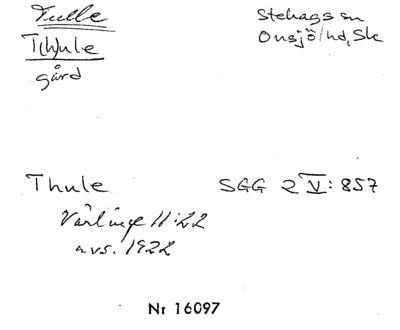 Tulle
T(h)ule
gård
Stehags sn
Onsjö hd, Sk
Thule
SGG 2 V: 857
Vårlinge 11:22
avs. 1922
Nr 16097